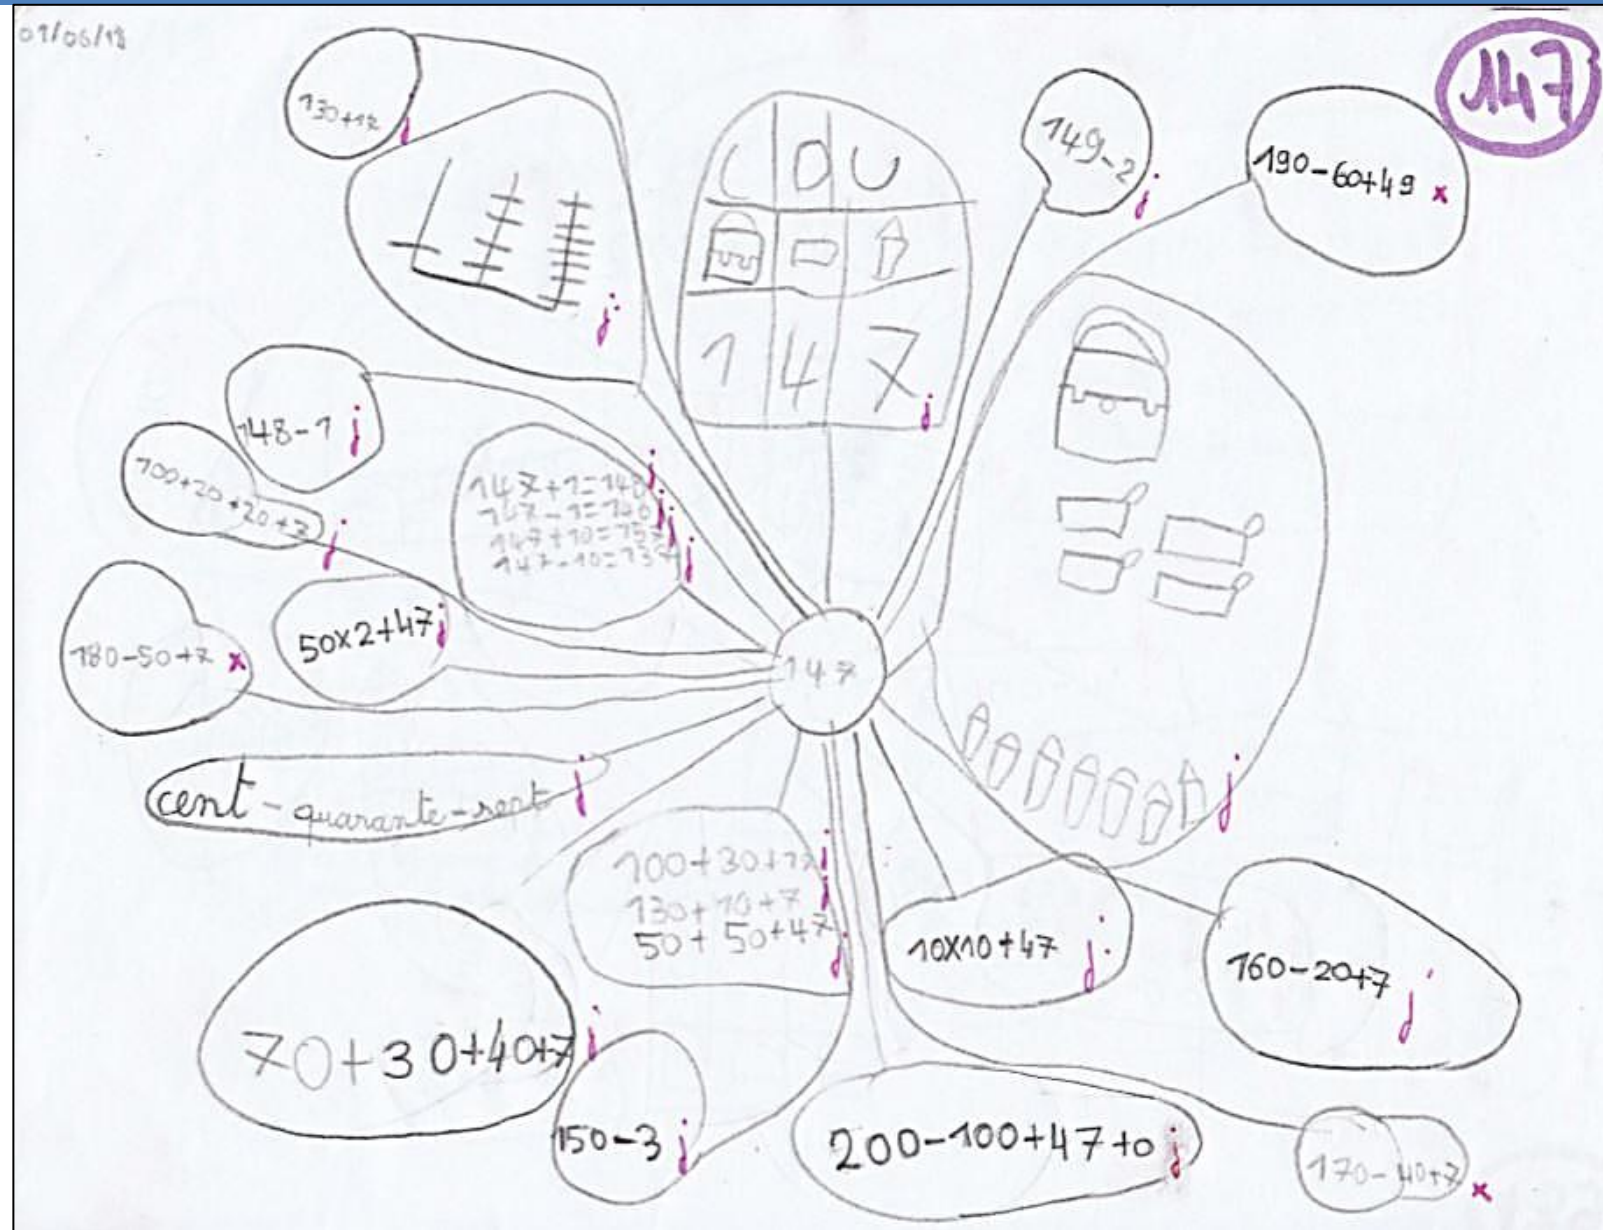 01/06/18
147
130+17 j
C D U
1 4 7 j
149-2 j
190-60+49 x
j
148-1 j
100+20+20+7 j
147+1=148 j
147-1=146 j
147+10=157 j
147-10=137 j
50x2+47 j
180-50+7 x
147
cent-quarante-sept j
j
100+30+17 j
130+10+7 j
50+50+47 j
10x10+47 j
160-20+7 j
70+30+40+7 j
150-3 j
200-100+47+0 j
170-40+7 x